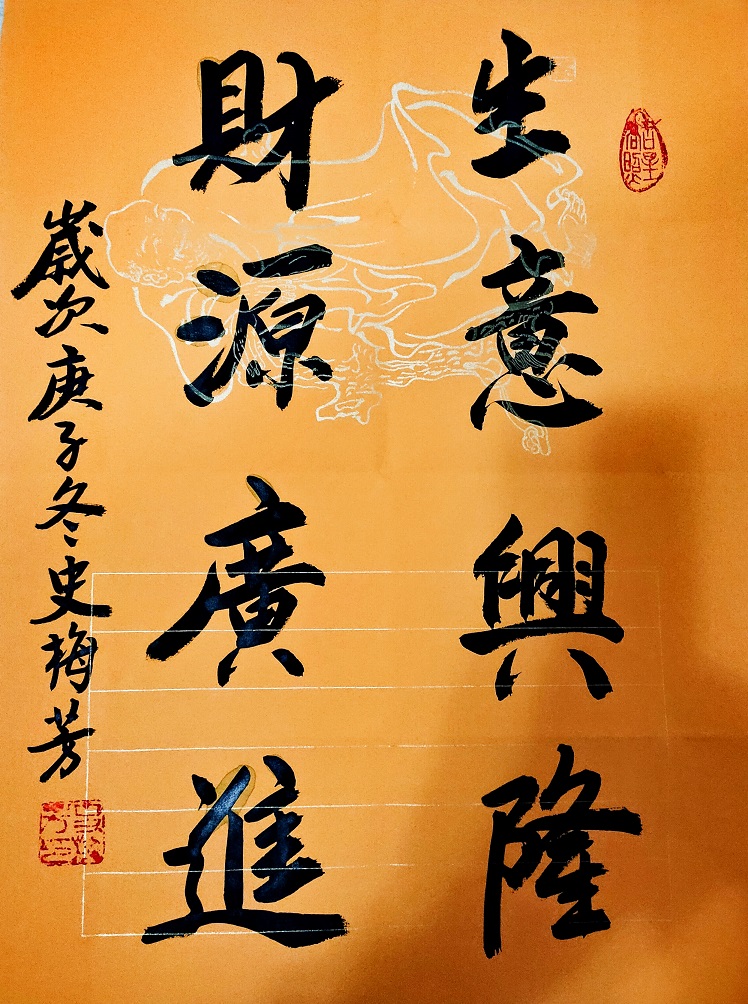 生意興隆
財源廣進
歲次庚子冬史梅芳